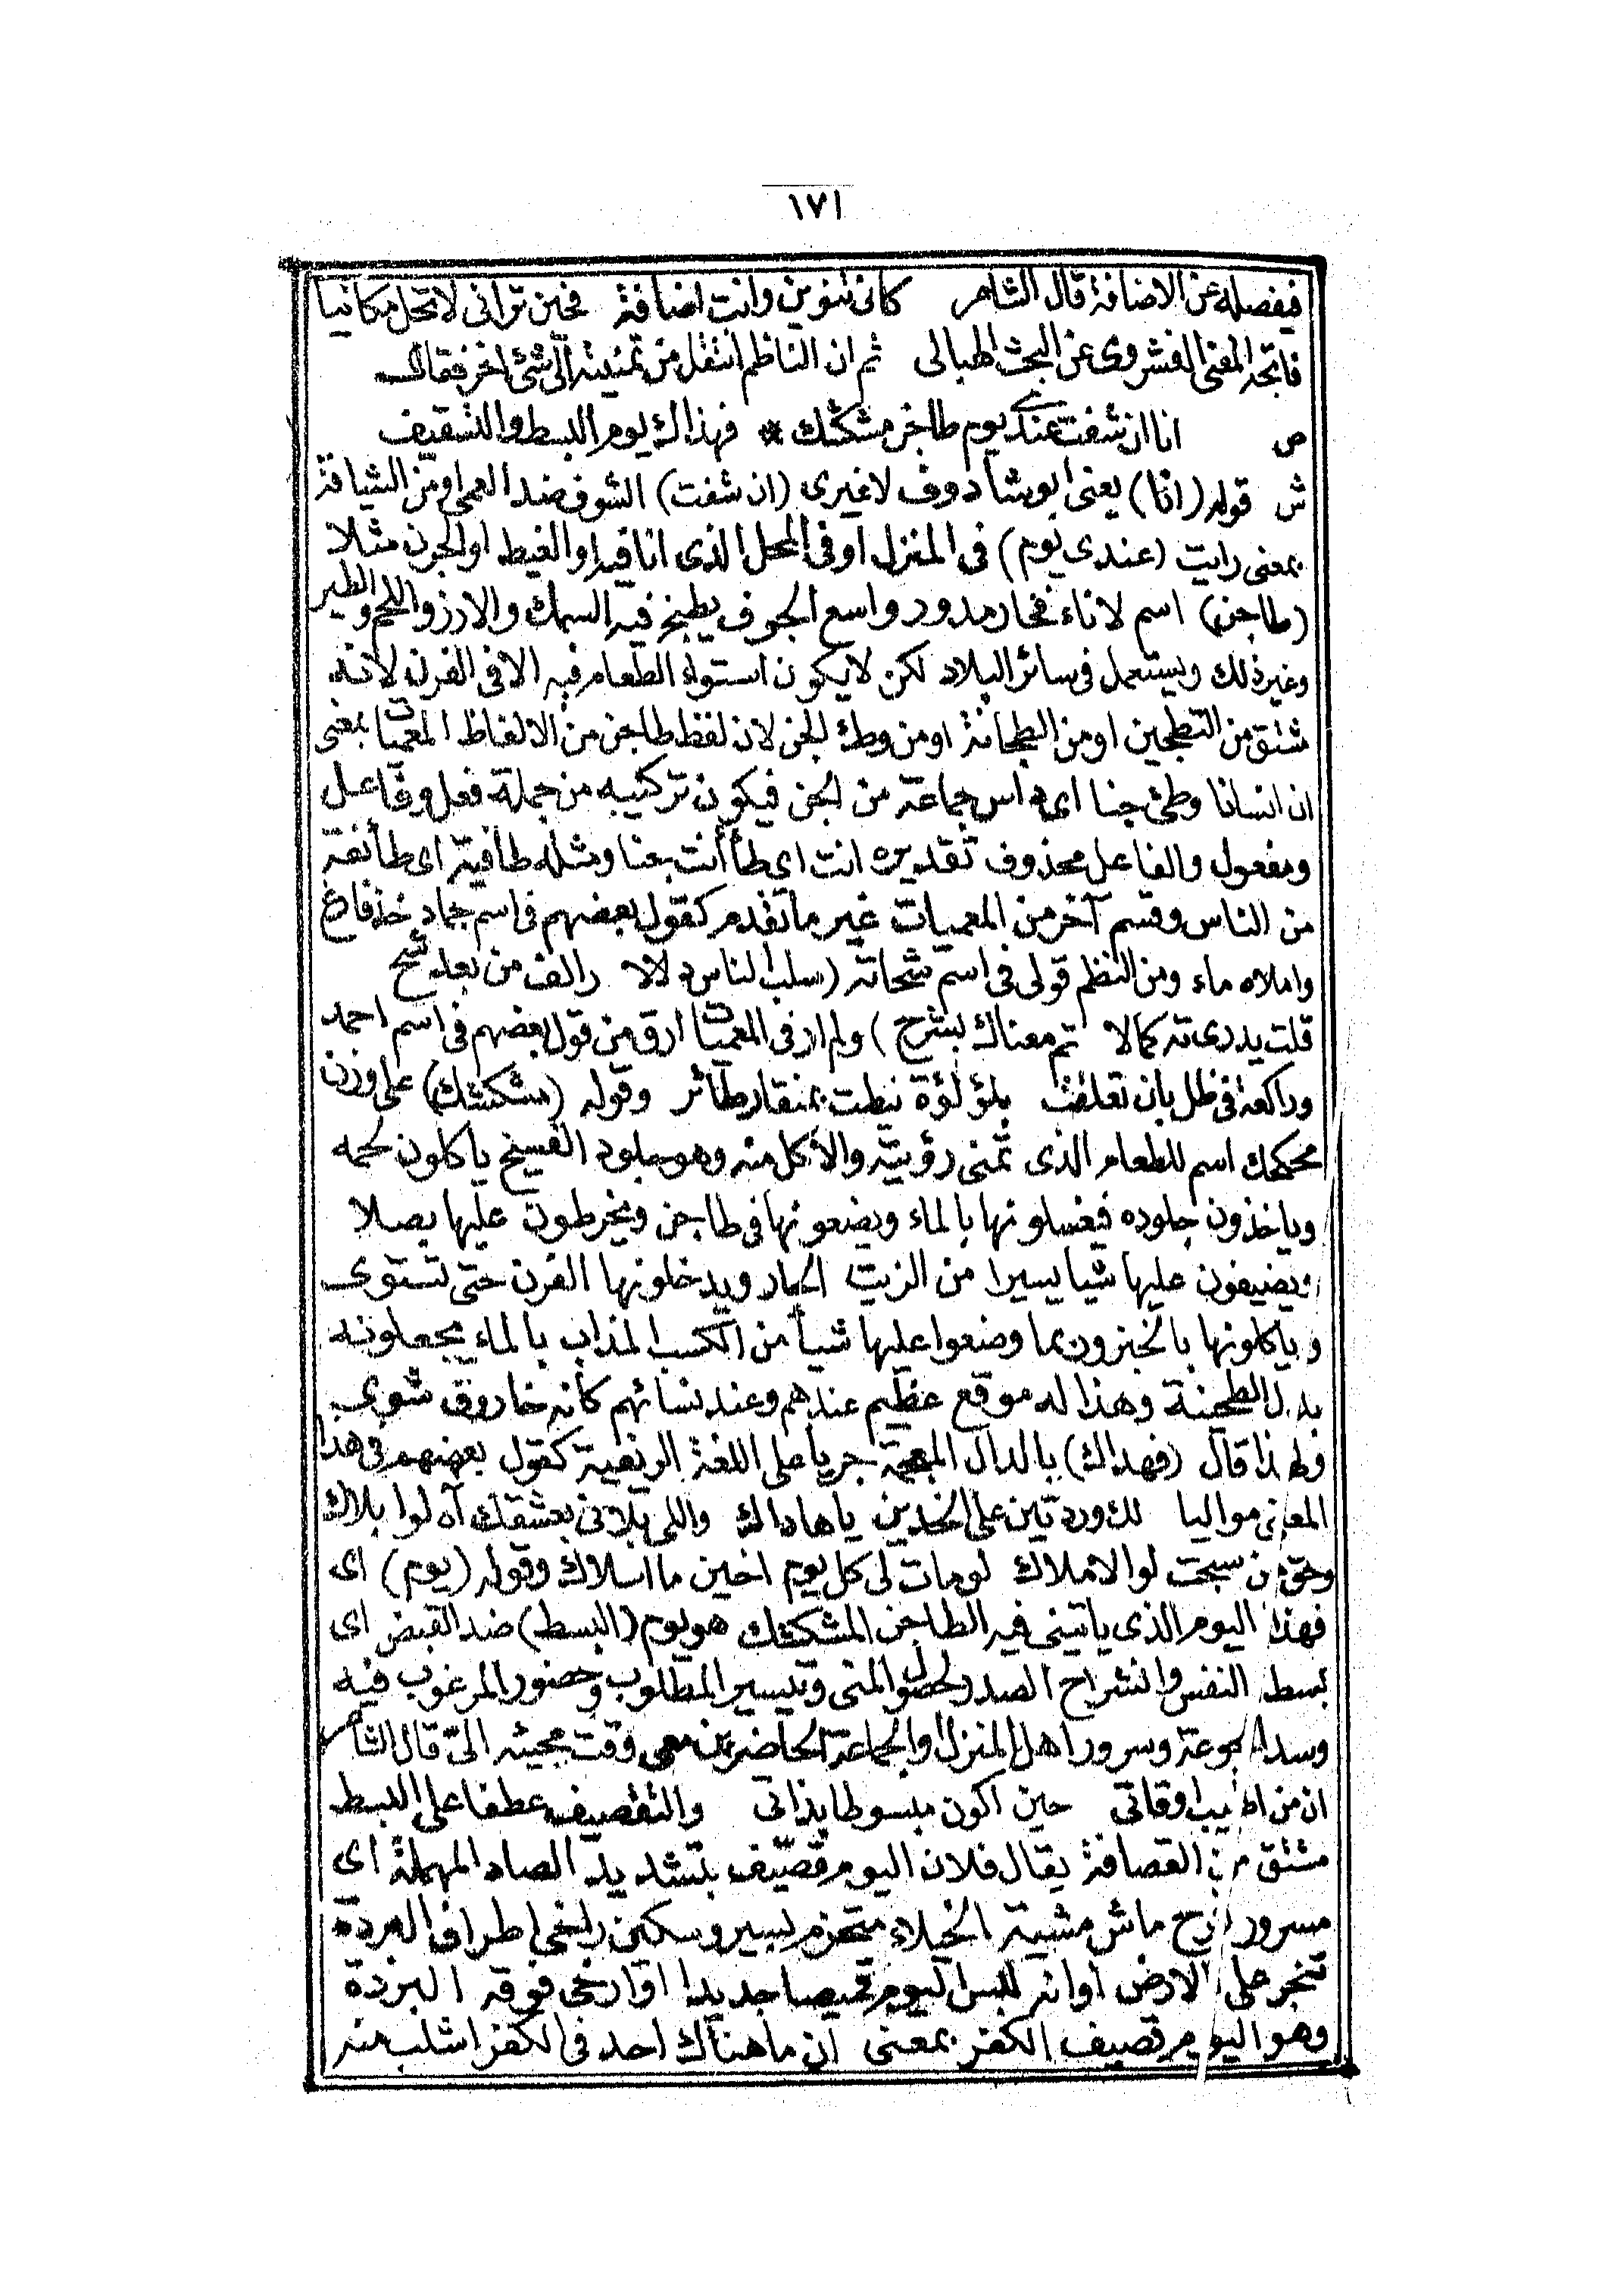 ١٧١
فيفصله عن الاضافة قال الشاعر كانى تنوين وانت اضافة فحين ترانى لا تحل مكانيا
فاتجه المعنى الفشروى عن البحث الهبالى ثم ان الناظم انتقل من تمنيته الى شئ اخر فقال
ص انا ان شفت عندى يوم طاجن مشكشك * فهذاك يوم البسط والتقصيف
ش قوله (انا) يعنى ابو شادوف لا غيرى (ان شفت) الشوف ضد العمى او من الشيافة
بمعنى رايت (عندى يوم) فى المنزل او فى المحل الذى انا فيه او الغيط او الجرن مثلا
(طاجن) اسم لاناء فخار مدور واسع الجوف يطبخ فيه السمك والارز واللحم والطير
وغير ذلك ويستعمل فى سائر البلاد لكن لا يكون استواء الطعام فيه الا فى الفرن لانه
مشتق من التطجين او من الطجانة او من وطئ الجن لان لفظ طاجن من الالفاظ المعميات بمعنى
ان انسانا وطئ جنا اى داس جماعة من الجن فيكون تركيبه من جملة فعل وفاعل
ومفعول والفاعل محذوف تقديره انت اى طأ أنت جنا ومثله طافية اى طأ ئفة
من الناس وقسم آخر من المعميات غير ما تقدم كقول بعضهم فى اسم حماد خذ فارغ
واملاه ماء ومن النظم قولى فى اسم شحاتة (سلب الناس دلالا رالف من بعد شح
قلت يدرى ته كمالا تم معناك بشرح) ولم ار فى المعميات ارق من قول بعضهم فى اسم احمد
وراكعة فى ظل بان تعلقت بلؤلؤة نيطت بمنقار طائر وقوله (مشكشك) على وزن
محكحك اسم للطعام الذى تمنى رؤيته والاكل منه وهو جلود الفسيخ ياكلون لحمه
وياخذون جلوده فيغسلونها بالماء ويضعونها فى طاجن ويخرطون عليها بصلا
ويضيفون عليها شيا يسيرا من الزيت الحار ويدخلونها الفرن حتى تستوى
وياكلونها بالخبز وربما وضعوا عليها شيأ من الكسب المذاب بالماء يجعلونه
بدل الطحينة وهذا له موقع عظيم عندهم وعند نسائهم كأنه خاروف شوى
ولهذا قال (فهداك) بالدال المهملة جريا على اللغة الريفية كقول بعضهم فى هذا
المعنى مواليا لك وردتين على الخدين يا هاداك واللى بلانى بعشقك آه لوا بلاك
وحق من سبحت لو الاملاك لو مات لى كل يوم اخين ما اسلاك وقوله (يوم) اى
فهذا اليوم الذى ياتينى فيه الطاجن المشكشك هو يوم (البسط) ضد القبض اى
بسط النفس وانشراح الصدر لحصول المنى وتيسير المطلوب وحضور المرغوب فيه
وسد الجوعة وسرور اهل المنزل والجماعة الحاضرين معى وقت مجيئه الىّ قال الشاعر
ان من اطيب اوقاتى حين اكون مبسوطا بذاتى والتقصيف عطفا على البسط
مشتق من القصافة يقال فلان اليوم قصّيف بتشديد الصاد المهملة اى
مسرور ماش مشية الخيلاء متحزم بسير وسكين رلخى اطراف البردة
تنجر على الارض او انه لابس اليوم قميصا جديدا او ارخى فوقه البردة
وهو اليوم قصيف الكفر بمعنى ان ما هناك احد فى الكفر اشلب منه